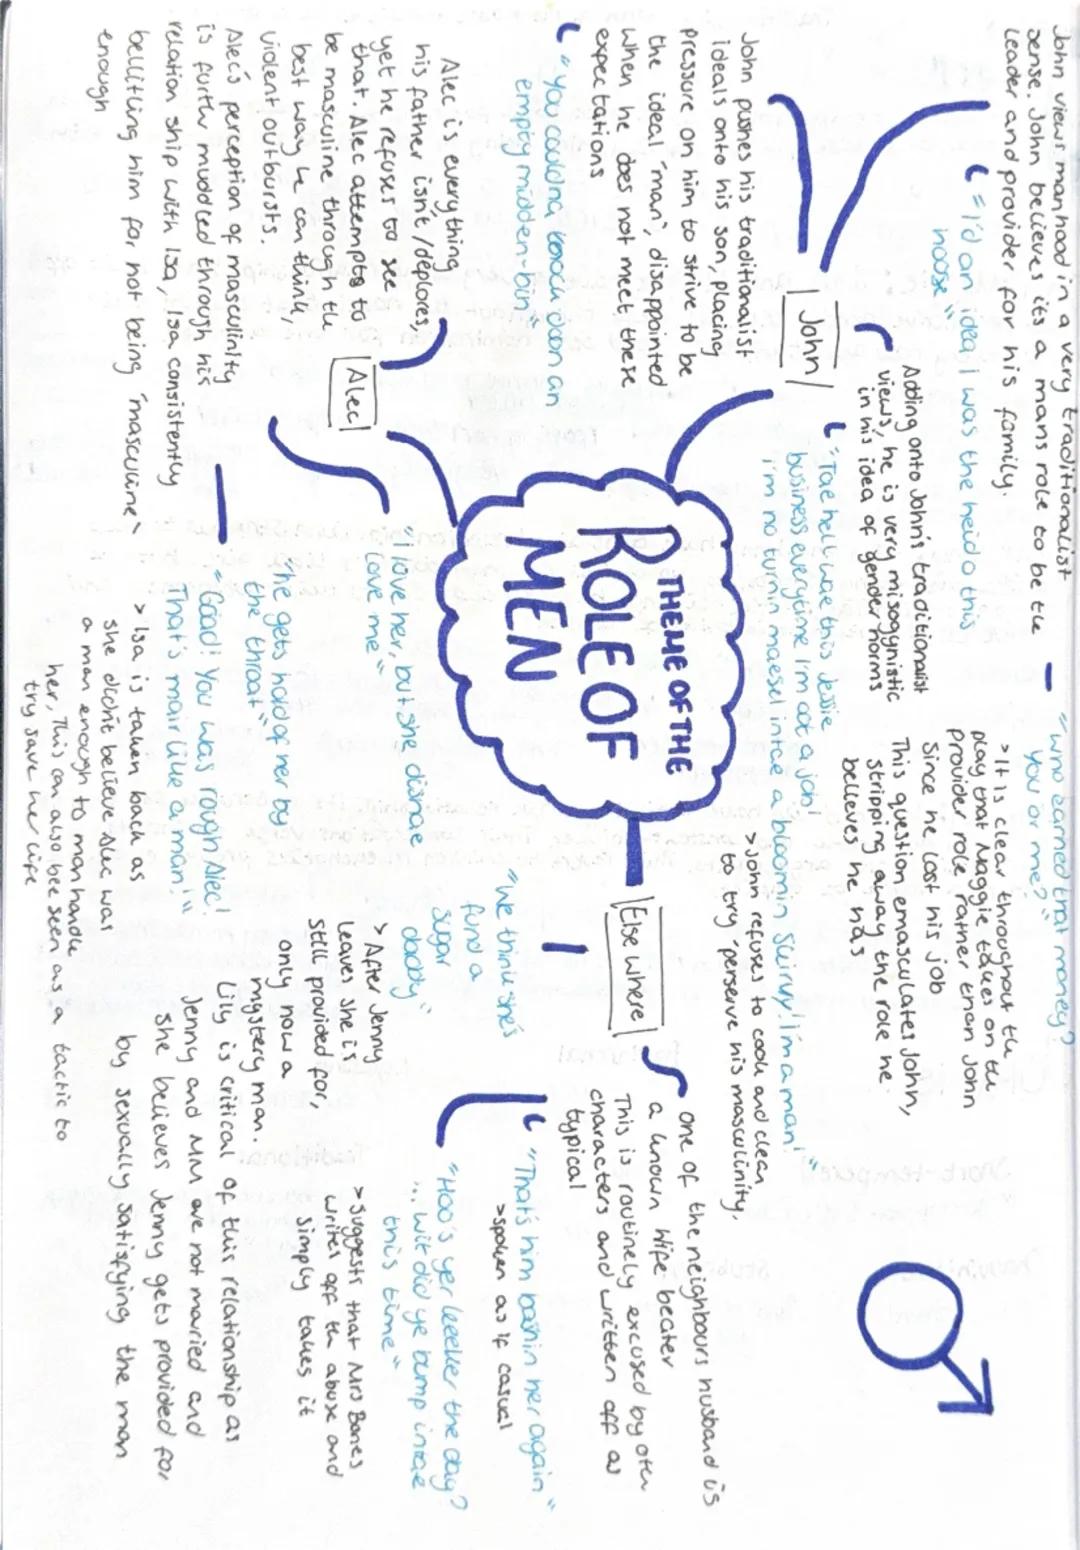 THEME OF THE
ROLE OF
MEN
John
John views manhood in a very traditionalist
sense. John believes its a mans role to be the
leader and provider for his family.
"I'd an idea I was the heid o this
hoose"
John pushes his traditionalist
ideals onto his son, placing
pressure on him to strive to be
the ideal 'man', disappointed
when he does not meet these
expectations
"you couldne knock doon an
empty midden-bin"
Adding onto John's traditionalist
views, he is very misogynistic
in his idea of gender norms
"Tae hell wi this Jessie
business everytime I'm oot a job.
I'm no turnin masel intae a bloomin skivvy! I'm a man!"
>John refuses to cook and clean
to try perserve his masculinity.
"Who earned that money?
you or me?"
>It is clear throughout the
play that Maggie takes on the
provider role rather than John
since he lost his job
This question emasculates John,
stripping away the role he
believes he has
Alec
Alec is everything
his father isn't/deplores,
yet he refuses to see
that. Alec attempts to
be masculine through the
best way he can think,
violent outbursts.
Alec's perception of masculinity
is further muddled through his
relationship with Isa, Isa consistently
bellitling him for not being "masculine"
enough
"I love her, but she disnae
love me"
"he gets hard of her by
the throat"
"Good! You was rough, Alec!
That's mair like a man!"
> Isa is taken back as
she didn't believe Alec was
a man enough to manhandle
her, This can also be seen as a tactic to
try save her life
Else where
one of the neighbours husband is
a known wife beater
This is routinely excused by other
characters and written off as
typical
"That's him bashin her again"
>spoken as if casual
"Hoo's yer keeker the day?
...wit did ye bump intae
this time"
>suggests that Mrs Bones
writes off the abuse and
simply takes it
"we think she's
fund a
sugar
daddy"
> After Jenny
leaves she is
still provided for,
only now a
mystery man.
Lily is critical of this relationship as
Jenny and MM are not married and
she believes Jenny gets provided for
by sexually satisfying the man